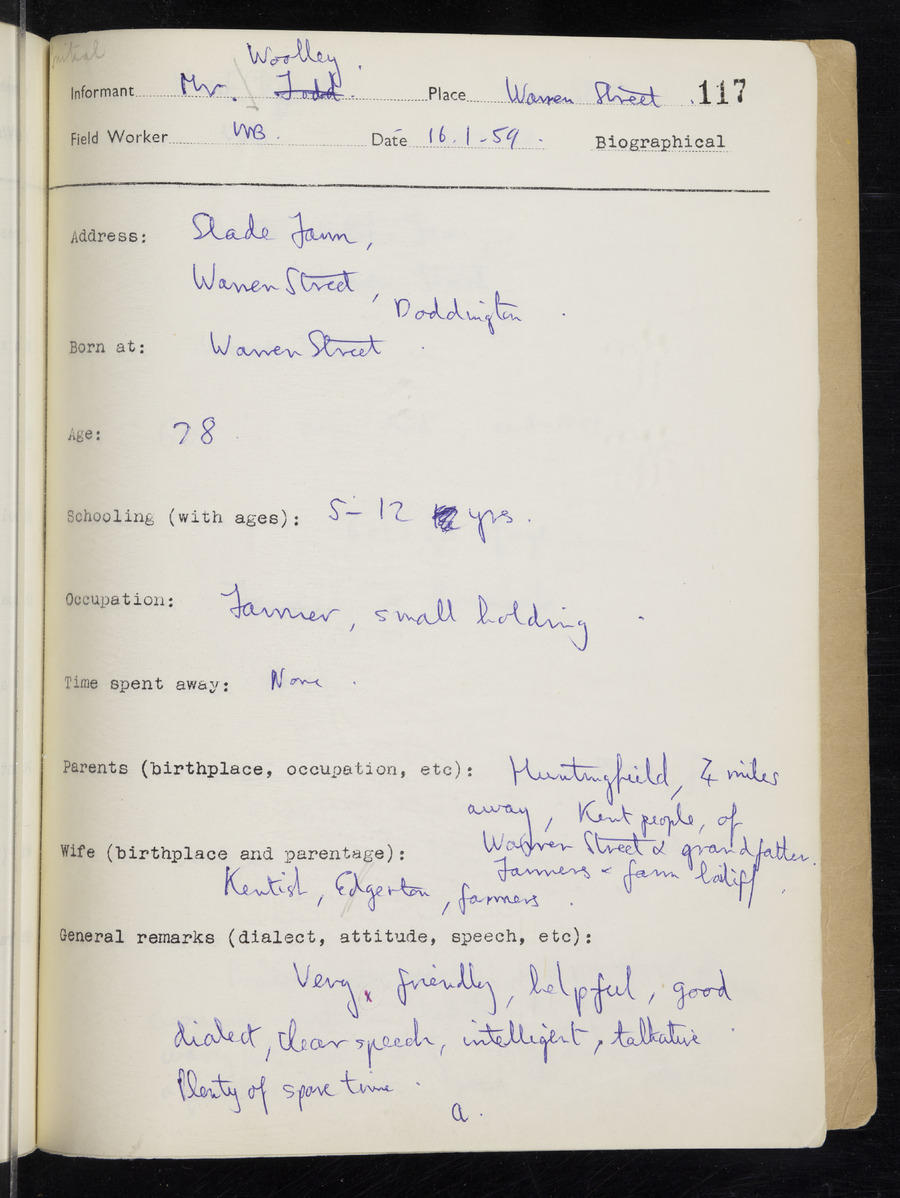 initial
Woolley.
Informant Mr. Todd. Place Warren Street .117
Field Worker WB. Date 16.1-59. Biographical
Address: Slade Farm,
Warren Street,
Doddington.
Born at: Warren Street.
Age: 78
Schooling (with ages): 5-12 yrs.
Occupation: Farmer, small holding.
Time spent away: None.
Parents (birthplace, occupation, etc): Huntingfield, 4 miles
away, Kent people, of
Warren Street & grandfather.
Wife (birthplace and parentage):
Farmers & farm bailiff,
Kentish, Edgerton, farmers.
General remarks (dialect, attitude, speech, etc):
Very x friendly, helpful, good
dialect, clear speech, intelligent, talkative.
Plenty of spare time.
a.